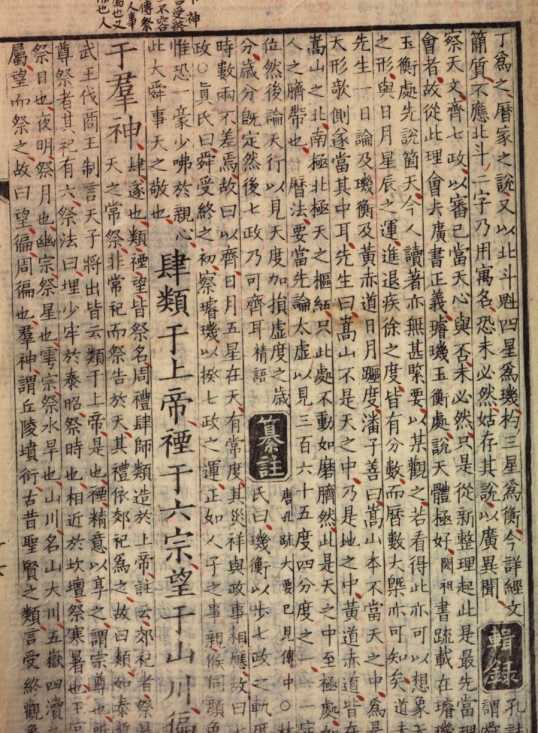 丁爲之曆家之說又以北斗魁四星爲璣杓三星爲衡今詳經文
簡質不應北斗二字乃用寓名恐未必然姑存其說以廣異聞輯錄孔註
察天文齊七政以審己當天心與否未必然只是從新整理起此是最先當理
會者故從此理會去廣書正義璿璣玉衡處說天體極好閎祖書疏載在璿璣
玉衡處先說箇天今人讀著亦無甚緊要以某觀之若看得此亦可以想象天
之形與日月星辰之運進退疾徐之度皆有分數而曆數大槩亦可知矣道夫
先生一日論及璣衡及黃赤道日月躔度潘子善曰嵩山本不當天之中爲是
天形欹側遂當其中耳先生曰嵩山不是天之中乃是地之中黃道赤道皆在
嵩山之北南極北極天之樞紐只此處不動如磨臍然此是天之中至極處如
人之臍帶也曆法要當先論太虛以見三百六十五度四分度之一一一定
位然後論天行以見天度加損虛度之歲
分歲分既定然後七政乃可齊耳精語
纂註唐孔疏大要已見傳中○林
氏曰璣衡以步七政之軌度
時數兩不差焉故曰以齊日月五星在天有常度其災祥與政事相應故曰七
政○眞氏曰舜受終之初察璿璣以揆七政之運正如人子之事親候伺顔色
惟恐一豪少咈於親心
此大舜事天之敬也
肆類于上帝禋于六宗望于山川徧
于羣神肆遂也類禋望皆祭名周禮肆師類造於上帝註云郊祀者祭昊
天之常祭非常祀而祭告於天其禮依郊祀爲之故曰類如泰誓
武王伐商王制言天子將出皆云類于上帝是也禋精意以享之謂宗尊也所
尊祭者其祀有六祭法曰埋少牢於泰昭祭時也相近於坎壇祭寒暑也王宮
祭日也夜明祭月也幽宗祭星也雩宗祭水旱也山川名山大川五嶽四瀆之
屬望而祭之故曰望徧周徧也羣神謂丘陵墳衍古昔聖賢之類言受終觀象